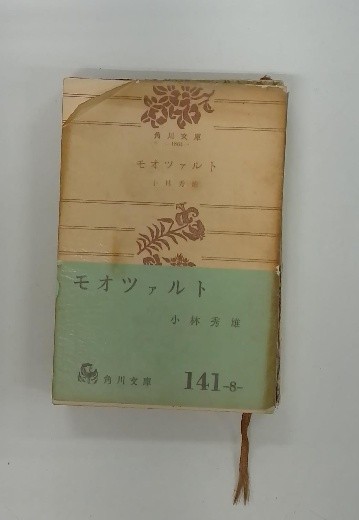 角川文庫
モオツァルト
小林秀雄
モオツァルト
小林秀雄
角川文庫
141-8-